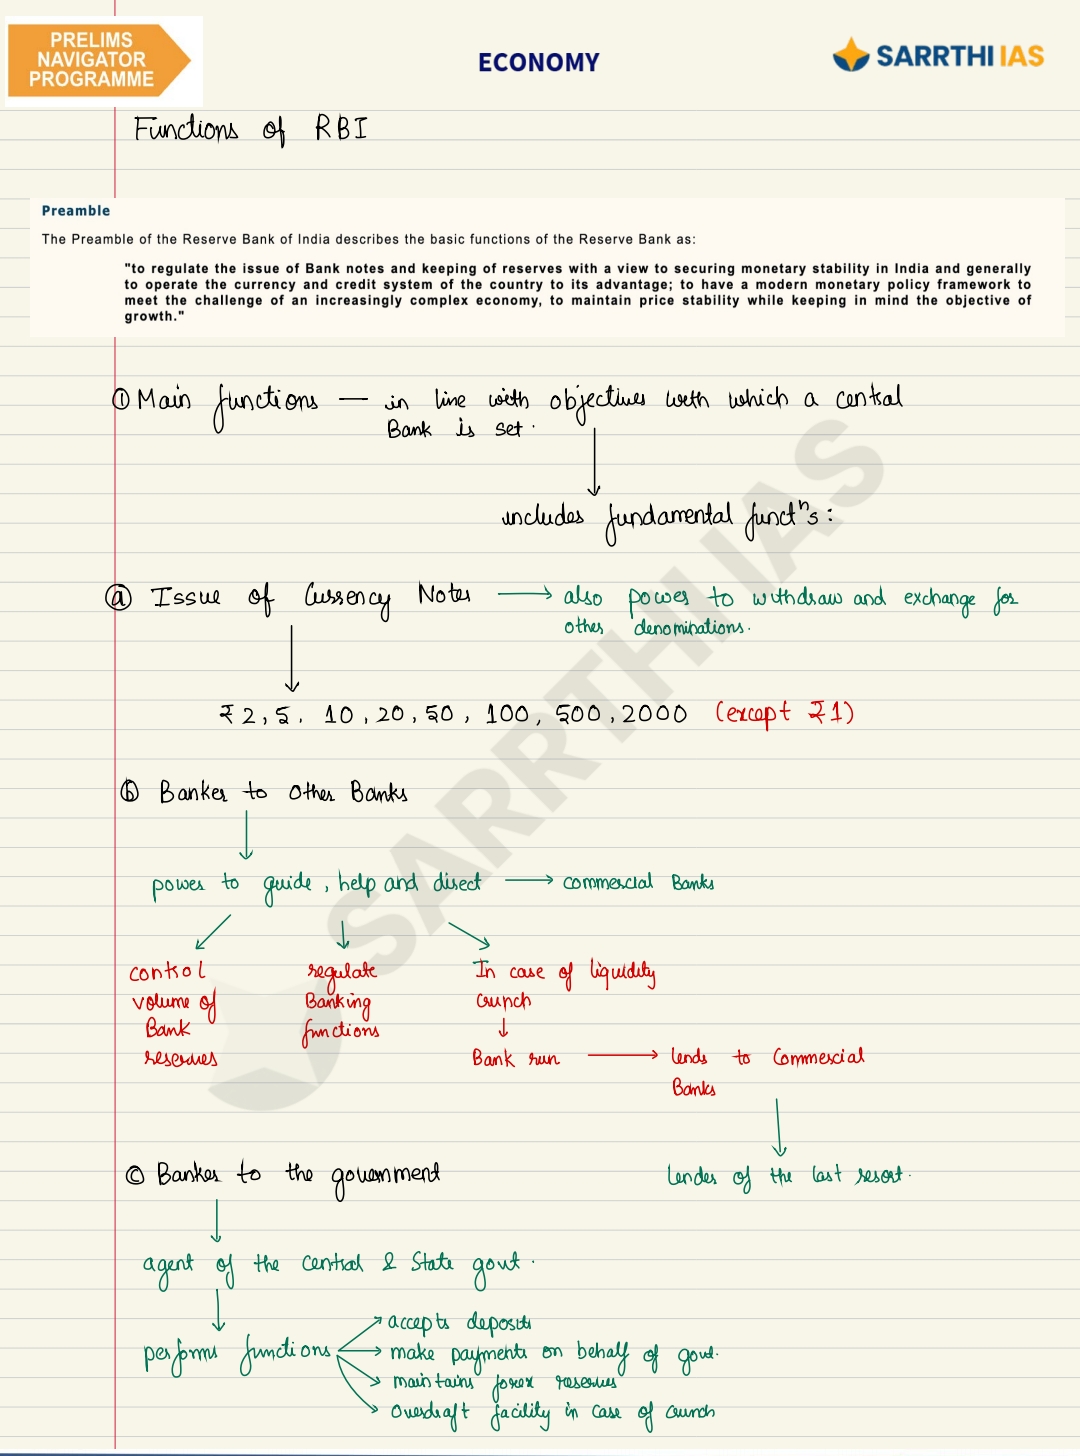 PRELIMS
NAVIGATOR
PROGRAMME
ECONOMY
SARRTHI IAS
Functions of RBI
Preamble
The Preamble of the Reserve Bank of India describes the basic functions of the Reserve Bank as:
"to regulate the issue of Bank notes and keeping of reserves with a view to securing monetary stability in India and generally
to operate the currency and credit system of the country to its advantage; to have a modern monetary policy framework to
meet the challenge of an increasingly complex economy, to maintain price stability while keeping in mind the objective of
growth."
① Main functions — in line with objectives with which a central
Bank is set.
includes fundamental functⁿs:
ⓐ Issue of Currency Notes → also power to withdraw and exchange for
other denominations.
₹ 2, 5, 10, 20, 50, 100, 500, 2000 (except ₹1)
ⓑ Banker to Other Banks
power to guide, help and direct → commercial Banks
control regulate In case of liquidity
volume of Banking crunch
Bank functions
reserves Bank run → lends to Commercial
Banks
ⓒ Banker to the government lender of the last resort.
agent of the central & State govt.
accepts deposits
performs functions → make payments on behalf of govt.
maintains forex reserves
Overdraft facility in case of crunch
SARRTHI IAS